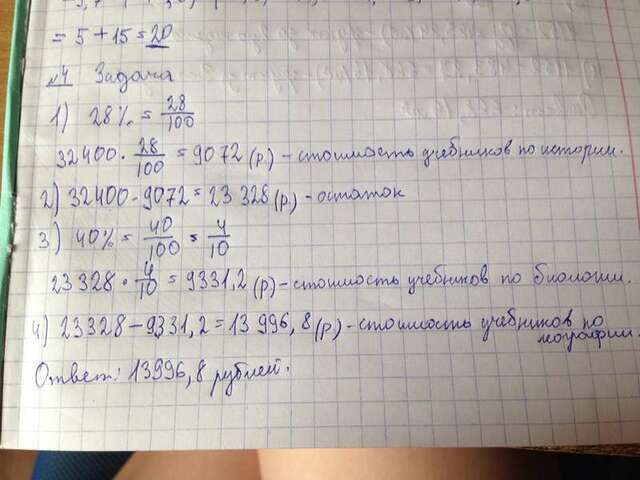 = 5 + 15 = 20
№4 Задача
1) 28% = 28/100
32400 · 28/100 = 9072 (р.) - стоимость учебников по истории.
2) 32400 - 9072 = 23 328 (р.) - остаток
3) 40% = 40/100 = 4/10
23328 · 4/10 = 9331,2 (р) - стоимость учебников по биологии.
4) 23328 - 9331,2 = 13 996,8 (р) - стоимость учебников по
географии.
Ответ: 13996,8 рублей.